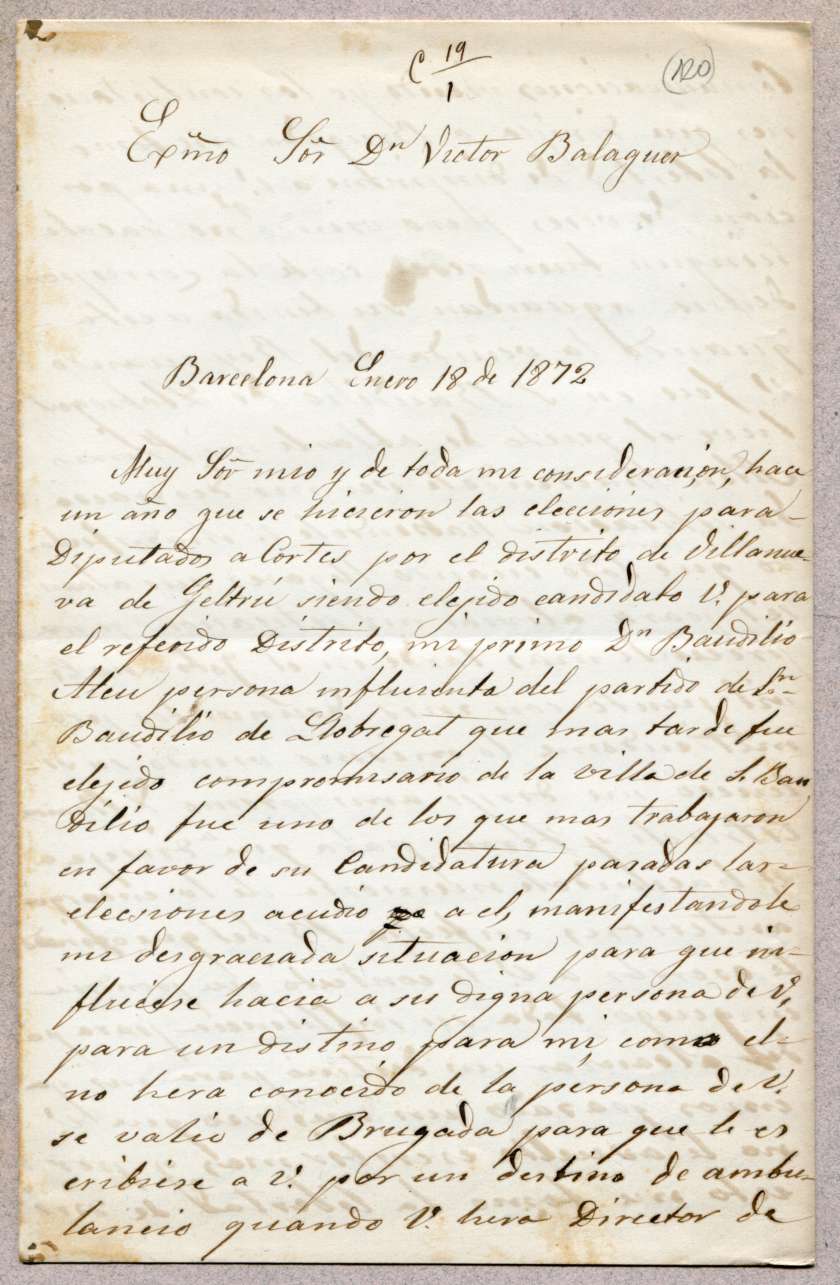 C 19/1
120
Exmo Sor Dn Victor Balaguer
Barcelona Enero 18 de 1872
Muy Sor mio y de toda mi consideracion, hace
un año que se hicieron las elecciones para
Diputados a Cortes por el distrito de Villanue-
va de Geltrú siendo elejido candidato V. para
el referido Distrito, mi primo Dn Baudilio
Aleu persona influienta del partido de Sn
Baudilio de Llobregat que mas tarde fue
elejido compromisario de la villa de S. Bau
dilio fue uno de los que mas trabajaron
en favor de su Candidatura pasadas las
elecsiones acudio a el, manifestandole
mi desgraciada situacion para que in-
fluiese hacia a su digna persona de V.
para un distino para mi, como el
no hera conocido de la persona de V.
se valio de Brugada para que le es
cribiese a V. por un destino de ambu-
lancio quando V. hera Director de